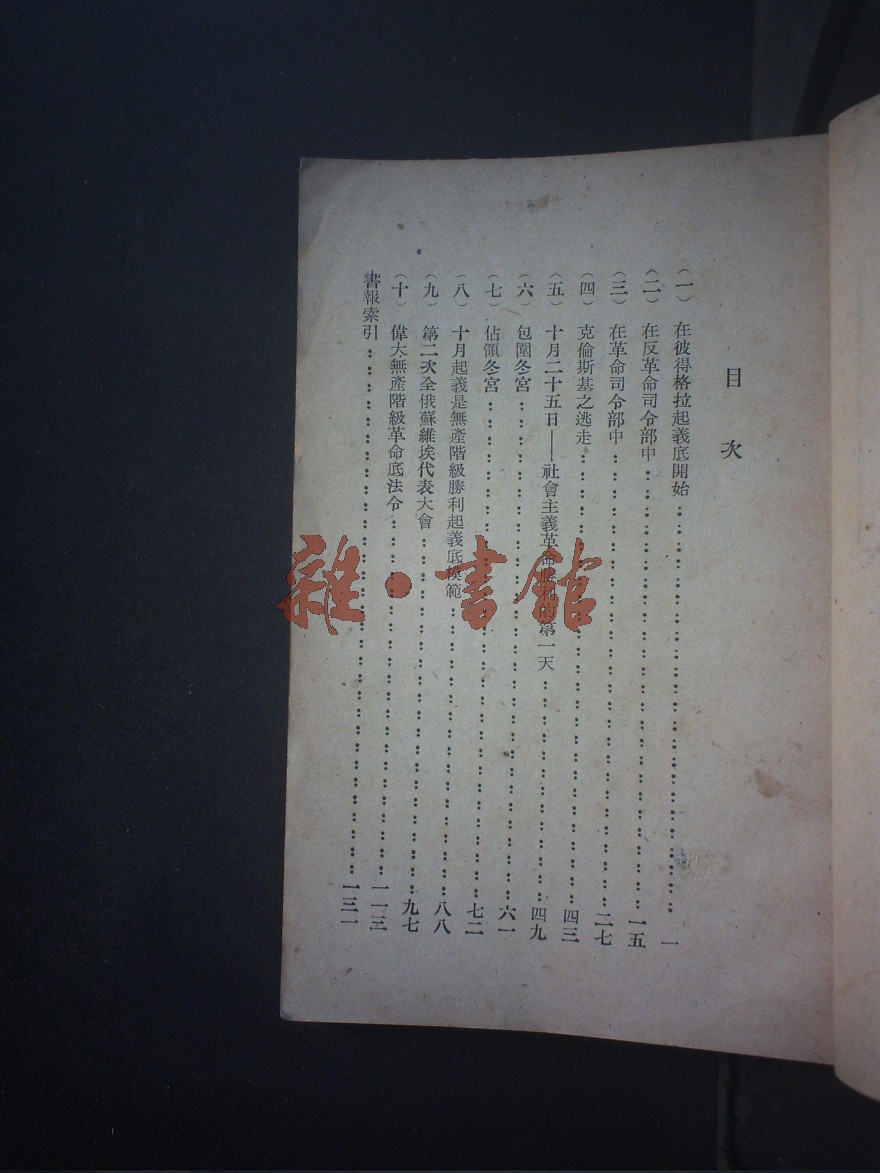 目次
（一）　在彼得格拉起義底開始……一
（二）　在反革命司令部中……一五
（三）　在革命司令部中……二七
（四）　克倫斯基之逃走……四三
（五）　十月二十五日——社會主義革命勝利的第一天……四九
（六）　包圍冬宮……六一
（七）　佔領冬宮……七二
（八）　十月起義是無產階級勝利起義底模範……八八
（九）　第二次全俄蘇維埃代表大會……九七
（十）　偉大無產階級革命底法令……一一三
書報索引……一三一
雜·書館